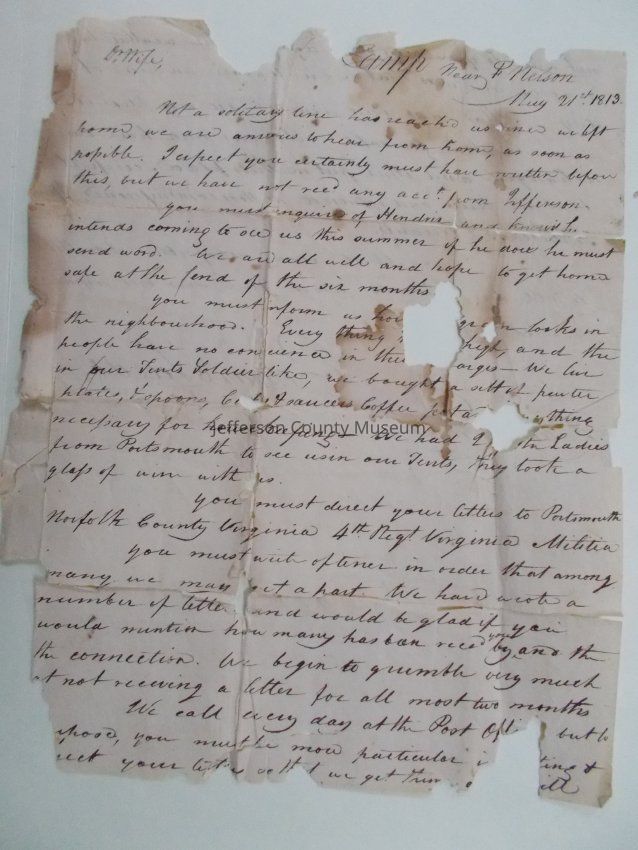 Dr Wife,
Camp Near Ft Nelson
May 21st 1813
Not a solitary line has reached us since we left
home, we are anxious to hear from home, as soon as
possible. I expect you certainly must have written before
this, but we have not recd any acct. from Jefferson.
you must enquire of Hendrix and know if he
intends coming to see us this summer if he does he must
send word. We are all well and hope to get home
safe at the end of the six months
you must inform us how grain looks in
the neighbourhood. Every thing high, and the
people have no in their We live
in our Tents Soldier like, we bought a sett of pewter
plates, Tspoons, Cups, & saucers Coffee pot & thing
necessary for We had Ladies
from Portsmouth to see us in our Tents, they took a
glass of wine with us.
you must direct your letters to Portsmouth
Norfolk County Virginia 4th Regt Virginia Militia
you must write oftener in order that among
many we may get a part. We have wrote a
number of letters and would be glad if you
would mention how many has been recd by you and the
the connection. We begin to grumble very much
at not receiving a letter for all most two months
We call every day at the Post Offi but to
you must be more particular in
your letters so that we get them
Jefferson County Museum